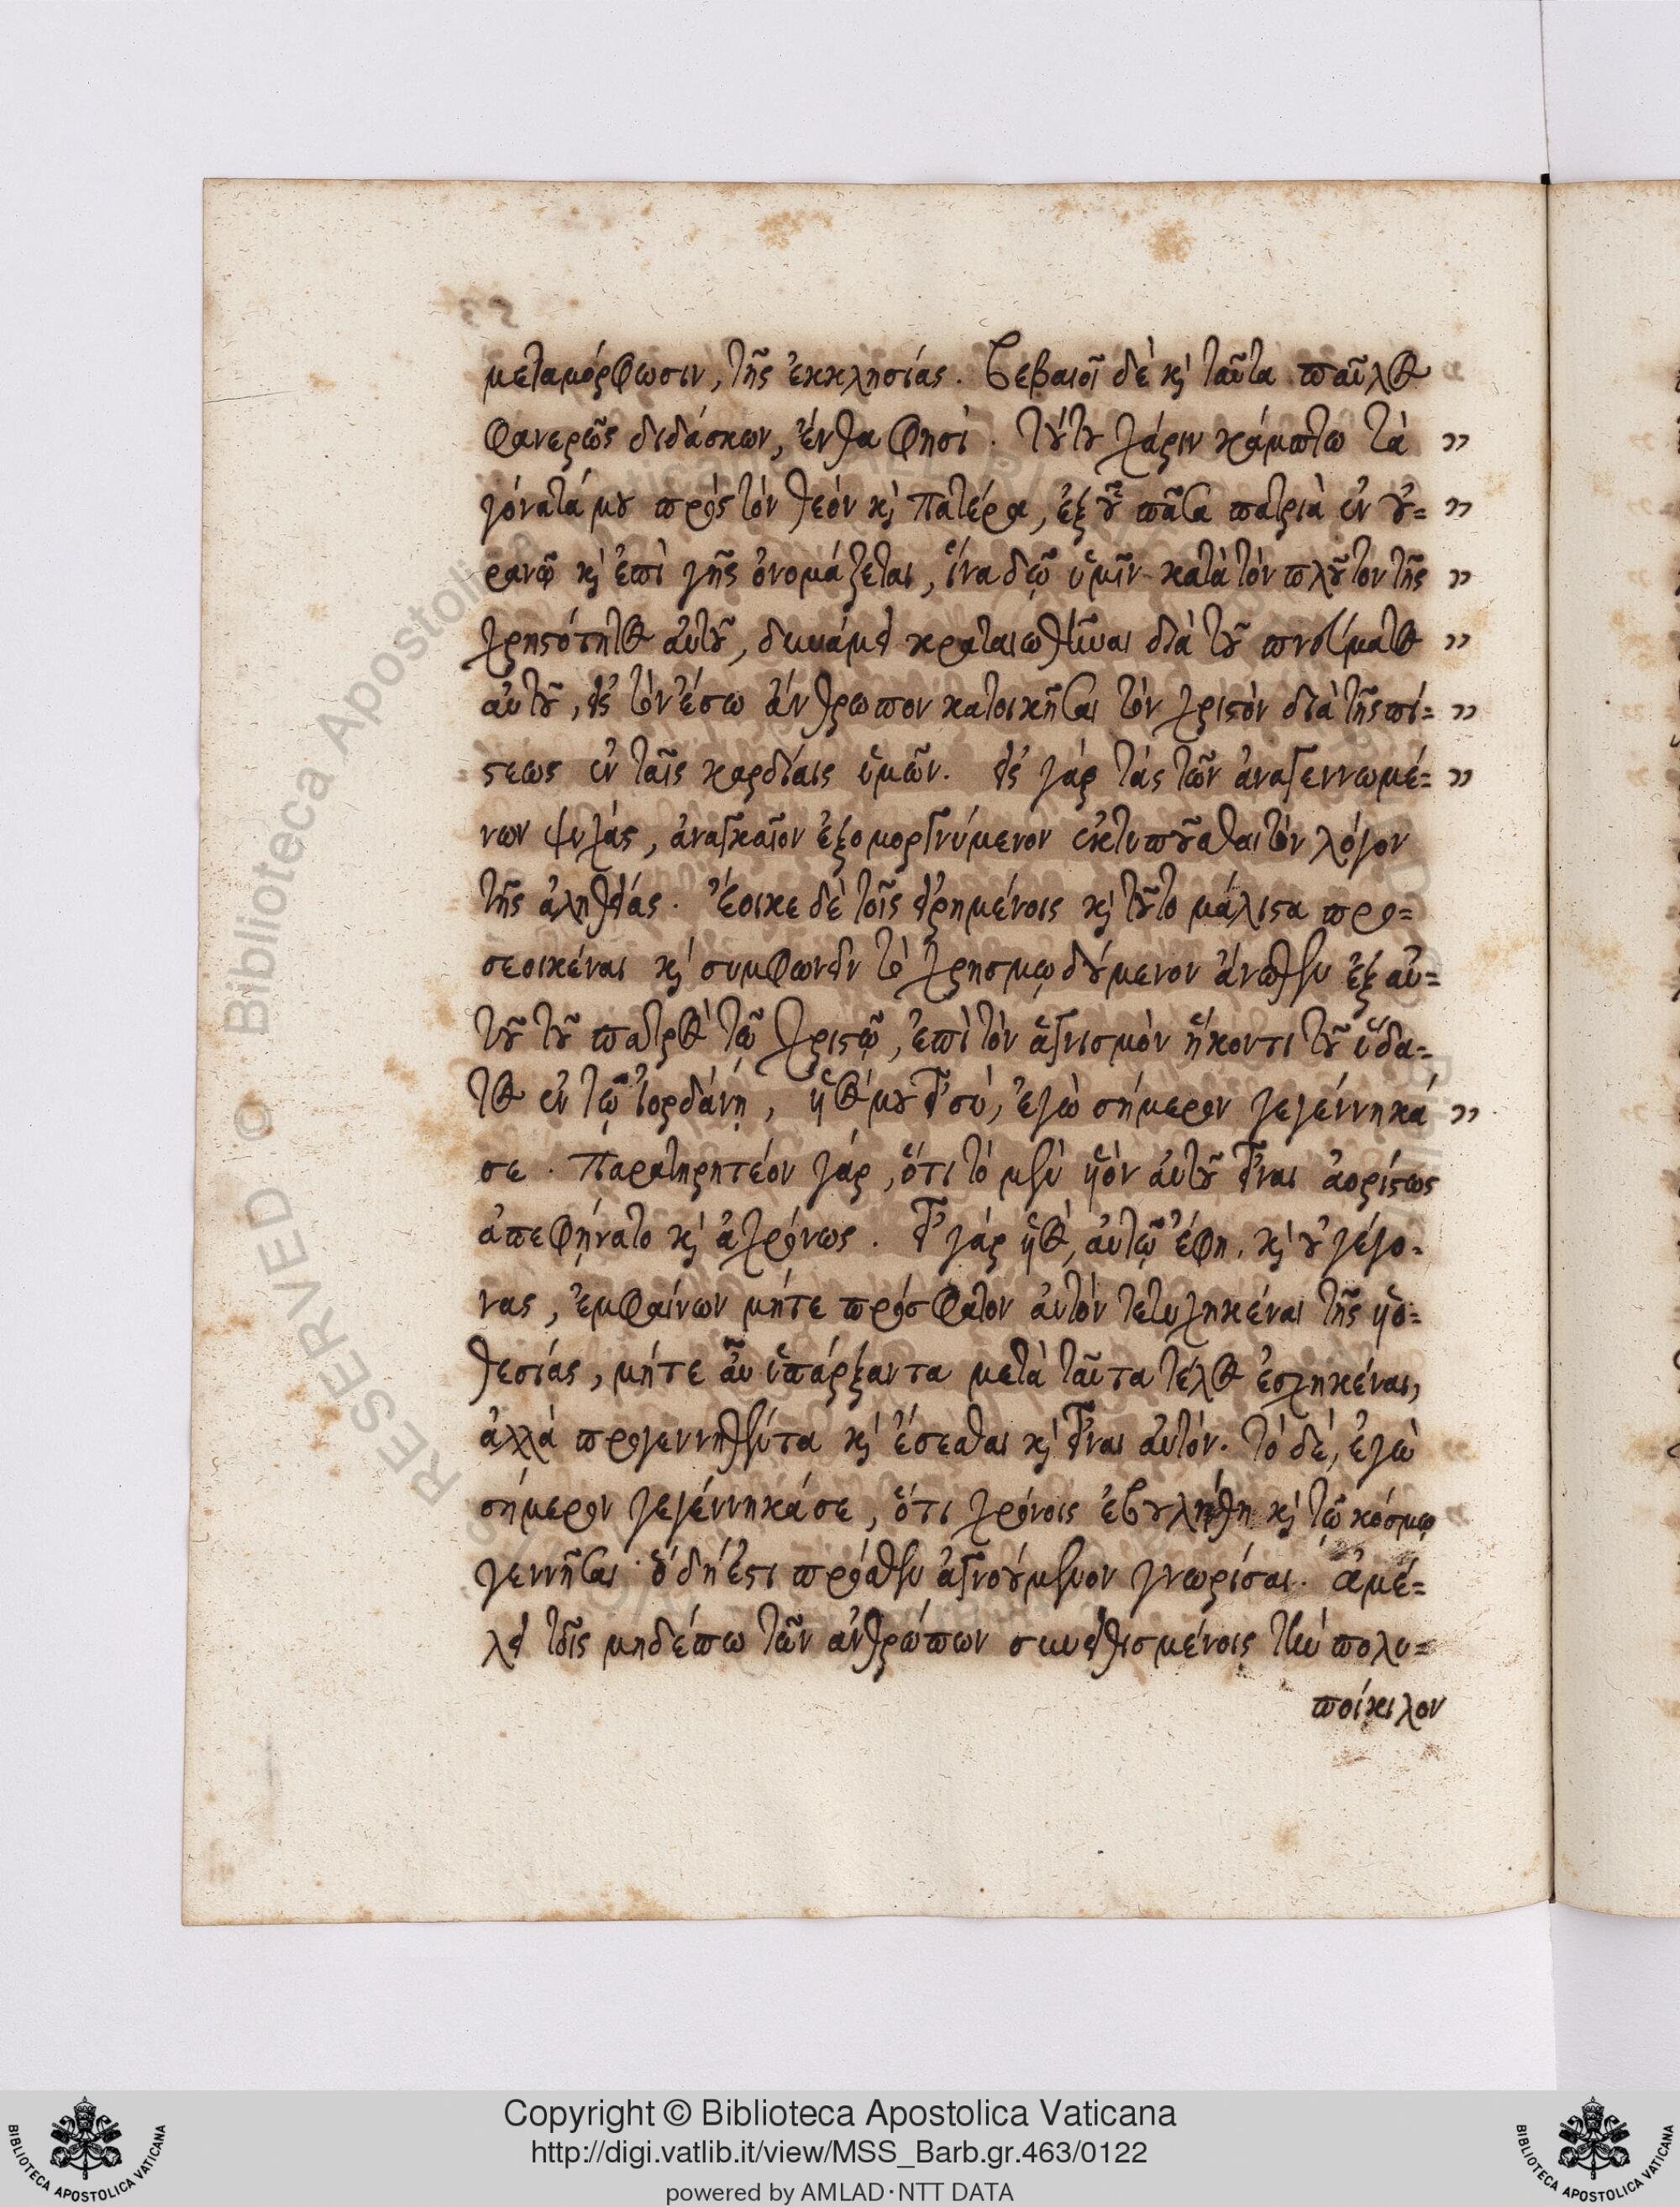 μεταμόρφωσιν, τῆς ἐκκλησίας. βεβαιοῖ δὲ κ̀ ταῦτα παῦλος
φανερῶς διδάσκων, ἔνθα φησί. τούτου χάριν κάμπτω τὰ „
γόνατά μου πρὸς τὸν θεὸν κ̀ πατέρα, ἐξ οὗ πᾶσα πατριὰ ἐν οὐ= „
ρανῷ κ̀ ἐπὶ γῆς ὀνομάζεται, ἵνα δῷ ὑμῖν κατὰ τὸν πλοῦτον τῆς „
χρηστότητος αὑτοῦ, δυνάμει κραταιωθῆναι διὰ τοῦ πνεύματος „
αὑτοῦ, εἰς τὸν ἔσω ἄνθρωπον κατοικῆσαι τὸν χριστὸν διὰ τῆς πί= „
στεως ἐν ταῖς καρδίαις ὑμῶν. εἰς γάρ τάς τῶν ἀναγεννωμέ= „
νων ψυχάς, ἀναγκαῖον ἐξομοργνύμενον ἐκτυποῦσθαι τὸν λόγον
τῆς ἀληθείας. Ἔοικε δὲ τοῖς εἰρημένοις κ̀ τοῦτο μάλιστα προ=
σεοικέναι κ̀ συμφωνεῖν τὸ χρησμῳδούμενον ἄνωθεν ἐξ αὐ=
τοῦ τοῦ πατρὸς τῷ χριστῷ, ἐπὶ τὸν ἁγνισμὸν ἥκοντι τοῦ ὕδα=
τος ἐν τῷ ἰορδάνῃ, ὑός μου εἶ σύ, ἐγὼ σήμερον γεγέννηκά „
σε. Παρατηρητέον γάρ, ὅτι τὸ μὲν ὑὸν αὐτοῦ εἶναι ἀορίστως
ἀπεφήνατο κ̀ ἀχρόνως. εἶ γάρ ὑός, αὐτῷ ἔφη, κ̀ οὐ γέγο=
νας, ἐμφαίνων μήτε πρόσφατον αὐτόν τετυχηκέναι τῆς ὑο=
θεσίας, μήτε αὖ ὑπάρξαντα μετὰ ταῦτα τέλος ἐσχηκέναι,
ἀλλὰ προγεννηθέντα κ̀ ἔσεσθαι κ̀ εἶναι αὐτόν. τὸ δέ, ἐγὼ
σήμερον γεγέννηκά σε, ὅτι χρόνοις ἐβουλήθη κ̀ τῷ κόσμῳ
γεννῆσαι. ὃ δή ἐστι πρόσθεν ἀγνοούμενον γνωρίσαι. ἀμέ=
λει τοῖς μηδέπω τῶν ἀνθρώπων συνειθισμένοις τὴν πολυ=
ποίκιλον
Copyright © Biblioteca Apostolica Vaticana
http://digi.vatlib.it/view/MSS_Barb.gr.463/0122
powered by AMLAD·NTT DATA